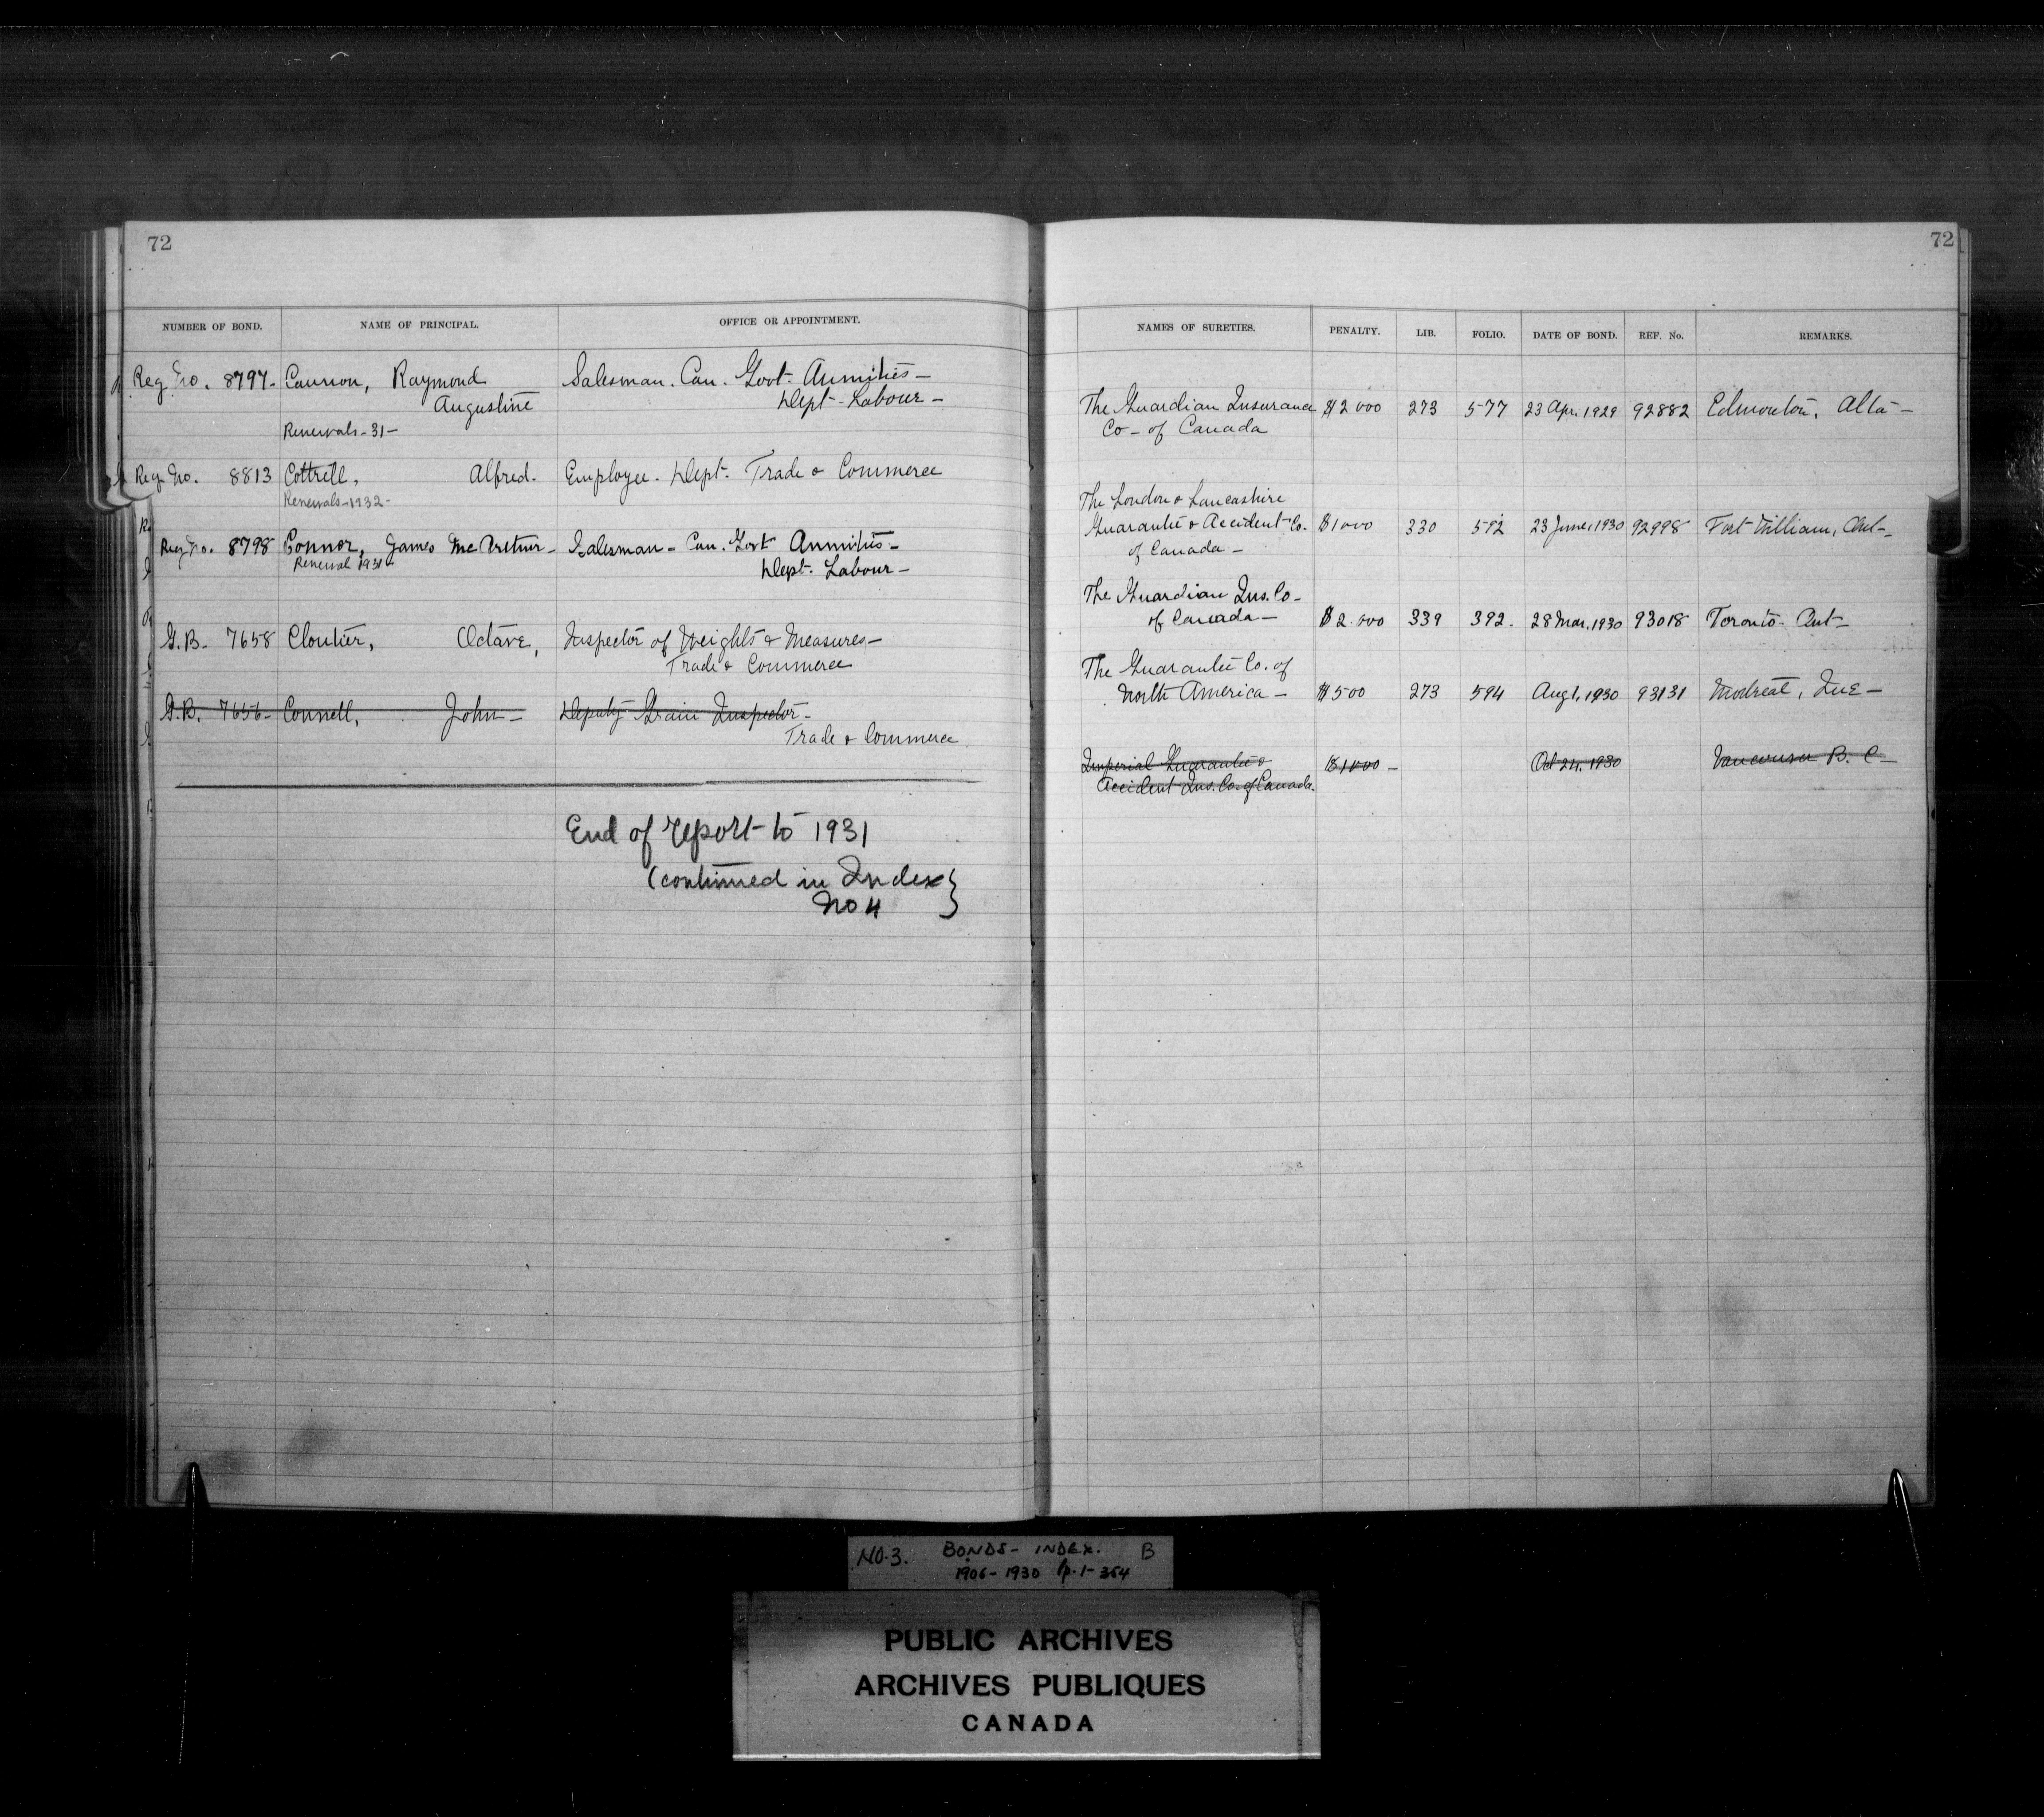 72
NUMBER OF BOND. NAME OF PRINCIPAL. OFFICE OR APPOINTMENT.
Reg. No. 8797- Raymond Salesman. Can. Govt. Annuities-
Augustine Dept- Labour-
Renewals-31-
Reg. No. 8813 Cottrell, Alfred. Employee. Dept. Trade & Commerce
Renewals-1932-
Reg. No. 8798 Connor, James Mc - Salesman- Can. Govt Annuities-
Renewal 1931 Dept. Labour-
G.B. 7658 Cloutier, Octave, Inspector of Weights & Measures-
Trade & Commerce
G.B. 7656- Connell, John- Deputy Grain Inspector-
Trade & Commerce
End of report to 1931
(continued in Index}
No 4
72
NAMES OF SURETIES. PENALTY. LIB. FOLIO. DATE OF BOND. REF. No. REMARKS.
The Guardian Insurance $2000 273 577 23 Apr. 1929 92882 Edmonton, Alta-
Co- of Canada
The London & Lancashire
Guarantee & Accident Co. $1000 330 592 23 June, 1930 92998 Fort William, Ont-
of Canada-
The Guardian Ins. Co-
of Canada- $2.000 339 392. 28 Mar. 1930 93018 Toronto- Ont-
The Guarantee Co. of
North America- $500 273 594 Aug 1, 1930 93131 Montreal, Que-
Imperial Guarantee & $1000- Oct 24, 1930 Vancouver B.C-
Accident Ins. Co. of Canada.
NO.3. BONDS- INDEX. B
1906-1930 p.1-354
PUBLIC ARCHIVES
ARCHIVES PUBLIQUES
CANADA